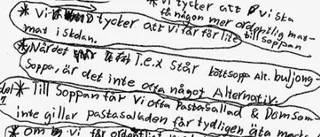 * vi tycker att vi ska
få någon mer ordentlig mat
* Vi tycker att vi får för lite till soppan
mat i skolan.
* När det t.e.x står köttsoppa alt. buljong-
soppa, är det inte ofta något Alternativ.
* Till Soppan får Vi ofta Pastasallad & Dom som
inte gillar pastasalladen får tydligen äta
* om vi får